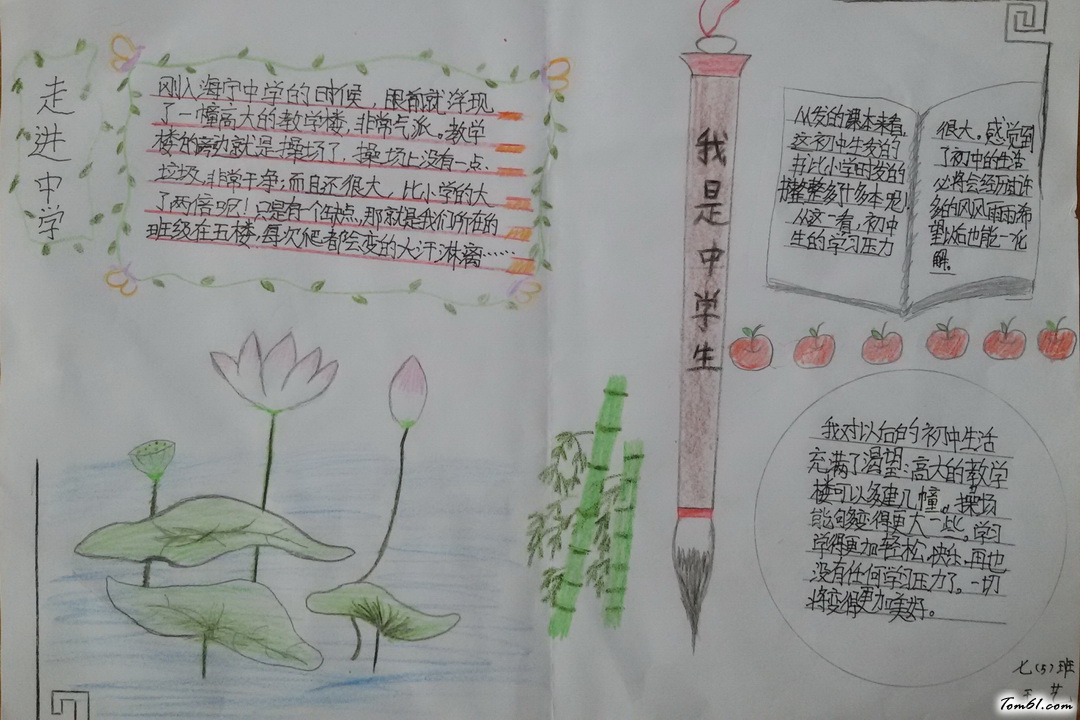 走进中学
刚入海宁中学的时候，眼前就浮现
了一幢高大的教学楼，非常气派。教学
楼的旁边就是操场了，操场上没有一点
垃圾，非常干净；而且还很大，比小学的大
了两倍呢！只是有个缺点，那就是我们所在的
班级在五楼，每次爬都会变的大汗淋漓……
我是中学生
从发的课本来看，
这初中生发的
书比小学时发的
整整多十多本呢！
从这一看，初中
生的学习压力
很大。感觉到
了初中的生活
必将会经历许
多的风风雨雨希
望以后也能一一化
解。
我对以后的初中生活
充满了渴望：高大的教学
楼可以多建几幢。操场
能够变得更大一些。学习
学得更加轻松，快乐，再也
没有任何学习压力了。一切
将变得更加美好。
七(5)班
Tom61.com